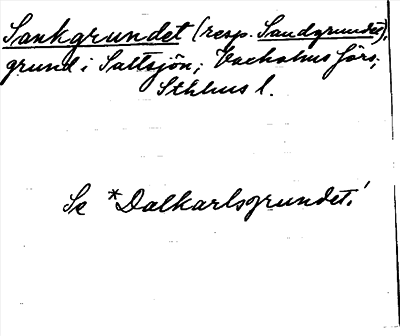 Sankgrundet (resp. Sandgrundet),
grund i Saltsjön; Vaxholms förs;
Sthlms l.
Se *Dalkarlsgrundet!